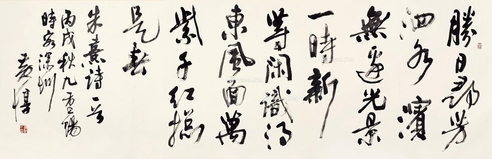 勝日尋芳
泗水濱
無邊光景
一時新
等閑識得
東風面萬
紫千紅總
是春
朱熹詩一首
丙戌秋九重陽
時客深圳
黄惇